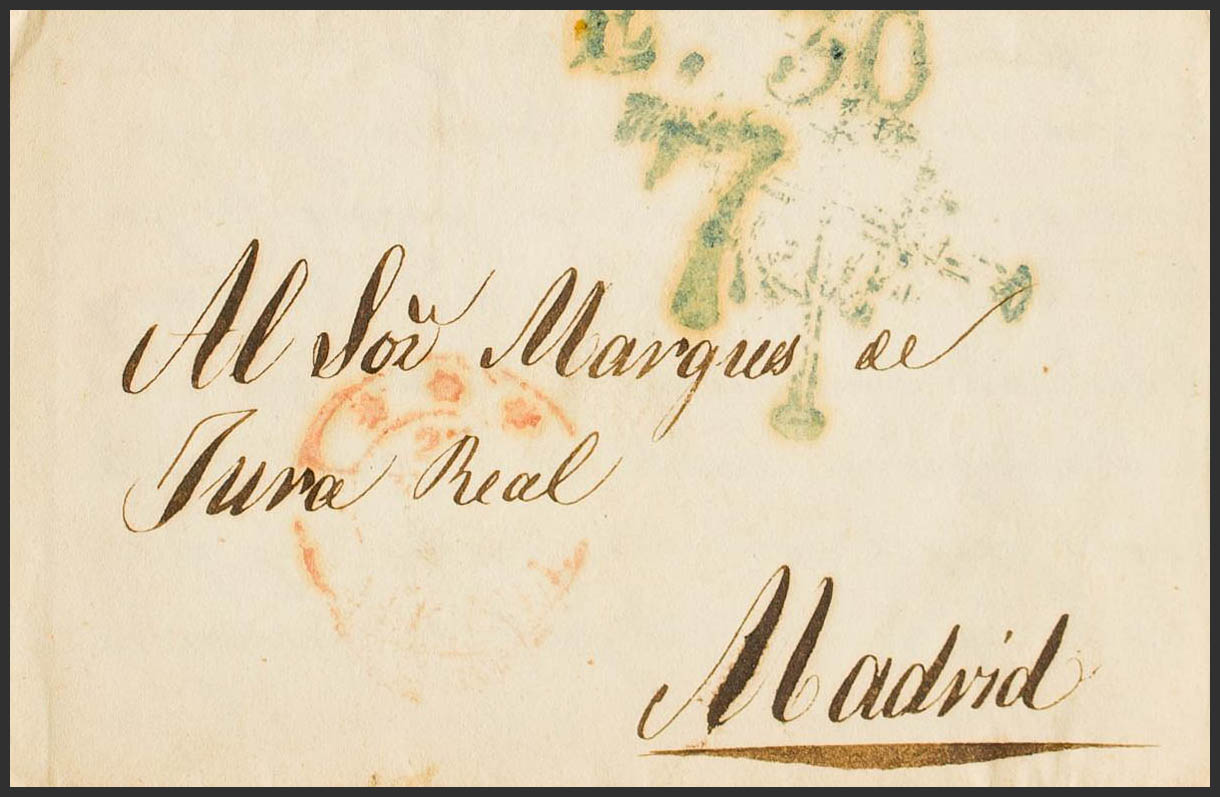 L. 30
7
Al Sor Marques de
Jura Real
Madrid